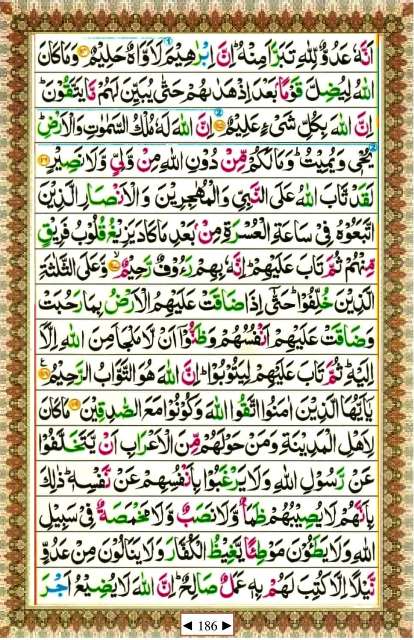 اَنَّهٗ عَدُوٌّ لِّلّٰهِ تَبَرَّاَ مِنْهُ ؕ اِنَّ اِبْرٰهِيْمَ لَاَوَّاهٌ حَلِيْمٌ ۝ وَمَا كَانَ
اللّٰهُ لِيُضِلَّ قَوْمًۢا بَعْدَ اِذْ هَدٰىهُمْ حَتّٰى يُبَيِّنَ لَهُمْ مَّا يَتَّقُوْنَ ؕ
اِنَّ اللّٰهَ بِكُلِّ شَىْءٍ عَلِيْمٌ ۝ اِنَّ اللّٰهَ لَهٗ مُلْكُ السَّمٰوٰتِ وَالْاَرْضِ ؕ
يُحْىٖ وَيُمِيْتُ ؕ وَمَا لَكُمْ مِّنْ دُوْنِ اللّٰهِ مِنْ وَّلِىٍّ وَّلَا نَصِيْرٍ ۝
لَقَدْ تَّابَ اللّٰهُ عَلَى النَّبِىِّ وَالْمُهٰجِرِيْنَ وَالْاَنْصَارِ الَّذِيْنَ
اتَّبَعُوْهُ فِىْ سَاعَةِ الْعُسْرَةِ مِنْۢ بَعْدِ مَا كَادَ يَزِيْغُ قُلُوْبُ فَرِيْقٍ
مِّنْهُمْ ثُمَّ تَابَ عَلَيْهِمْ ؕ اِنَّهٗ بِهِمْ رَءُوْفٌ رَّحِيْمٌ ۝ وَّعَلَى الثَّلٰثَةِ
الَّذِيْنَ خُلِّفُوْا ؕ حَتّٰۤى اِذَا ضَاقَتْ عَلَيْهِمُ الْاَرْضُ بِمَا رَحُبَتْ
وَضَاقَتْ عَلَيْهِمْ اَنْفُسُهُمْ وَظَنُّوْۤا اَنْ لَّا مَلْجَاَ مِنَ اللّٰهِ اِلَّاۤ
اِلَيْهِ ؕ ثُمَّ تَابَ عَلَيْهِمْ لِيَتُوْبُوْا ؕ اِنَّ اللّٰهَ هُوَ التَّوَّابُ الرَّحِيْمُ ۝
يٰۤاَيُّهَا الَّذِيْنَ اٰمَنُوا اتَّقُوا اللّٰهَ وَكُوْنُوْا مَعَ الصّٰدِقِيْنَ ۝ مَا كَانَ
لِاَهْلِ الْمَدِيْنَةِ وَمَنْ حَوْلَهُمْ مِّنَ الْاَعْرَابِ اَنْ يَّتَخَلَّفُوْا
عَنْ رَّسُوْلِ اللّٰهِ وَلَا يَرْغَبُوْا بِاَنْفُسِهِمْ عَنْ نَّفْسِهٖ ؕ ذٰلِكَ
بِاَنَّهُمْ لَا يُصِيْبُهُمْ ظَمَاٌ وَّلَا نَصَبٌ وَّلَا مَخْمَصَةٌ فِىْ سَبِيْلِ
اللّٰهِ وَلَا يَطَـُٔوْنَ مَوْطِئًا يَّغِيْظُ الْكُفَّارَ وَلَا يَنَالُوْنَ مِنْ عَدُوٍّ
نَّيْلًا اِلَّا كُتِبَ لَهُمْ بِهٖ عَمَلٌ صَالِحٌ ؕ اِنَّ اللّٰهَ لَا يُضِيْعُ اَجْرَ
◄ 186 ►